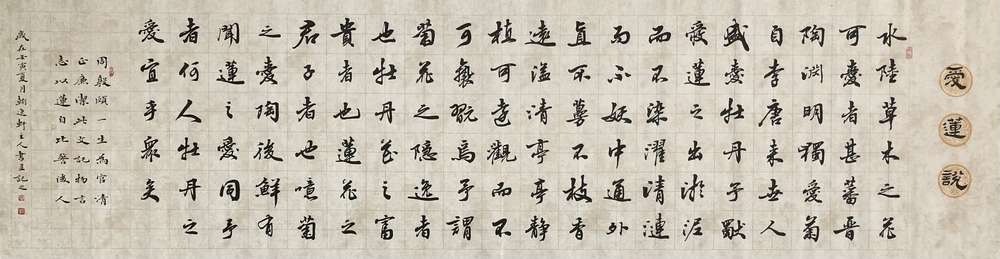 愛蓮說
水陸草木之花
可愛者甚蕃晉
陶淵明獨愛菊
自李唐来世人
盛愛牡丹予獨
愛蓮之出淤泥
而不染濯清漣
而不妖中通外
直不蔓不枝香
遠溢清亭亭静
植可遠觀而不
可褻翫焉予謂
菊花之隱逸者
也牡丹花之富
貴者也蓮花之
君子者也噫菊
之愛陶後鮮有
聞蓮之愛同予
者何人牡丹之
愛宜乎衆矣
周敦頤一生為官清
正廉潔此文記物言
志以蓮自比警後人
歲在壬寅夏月翰逸軒主人書並記之